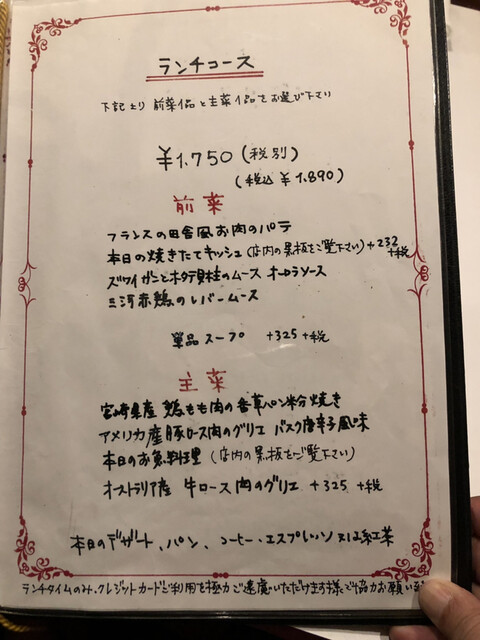 ランチコース
下記より 前菜1品と主菜1品をお選び下さい
¥1.750 (税別)
(税込 ¥1.890)
前菜
フランスの田舎風お肉のパテ
本日の焼きたてキッシュ (店内の黒板をご覧下さい) +232 +税
ズワイガニとホタテ貝柱のムース オーロラソース
三河赤鶏のレバームース
単品スープ +325 +税
主菜
宮崎県産 鶏もも肉の香草パン粉焼き
アメリカ産豚ロース肉のグリエ バスク唐辛子風味
本日のお魚料理 (店内の黒板をご覧下さい)
オーストラリア産 牛ロース肉のグリエ +325 +税
本日のデザート、パン、コーヒー・エスプレッソ 又は紅茶
ランチタイムのみ、クレジットカードご利用を極力ご遠慮いただけます様ご協力お願い